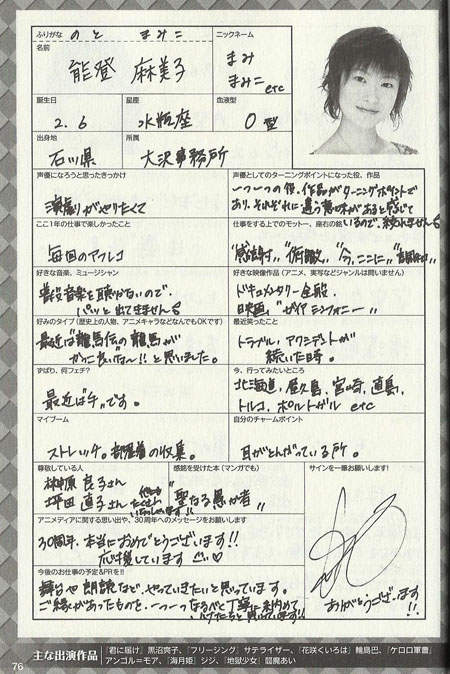 ふりがな のと まみこ
ニックネーム
名前 能登 麻美子
まみ
まみこ etc
誕生日 2.6
星座 水瓶座
血液型 O型
出身地 石川県
所属 大沢事務所
声優になろうと思ったきっかけ
演劇がやりたくて
声優としてのターニングポイントになった役、作品
一つ一つの役、作品がターニングポイントで
あり、それぞれに違う意味があると感じて
いるので、絞れません
ここ1年の仕事で楽しかったこと
毎回のアフレコ
仕事をする上でのモットー、座右の銘
"感謝"、"俯瞰"、"今、ここに"
好きな音楽、ミュージシャン
普段音楽を聴かないので、
パッと出てきません
好きな映像作品(アニメ、実写などジャンルは問いません)
ドキュメンタリー全般
映画 "ガイアシンフォニー"
好みのタイプ(歴史上の人物、アニメキャラなどなんでもOKです)
最近は"龍馬伝の龍馬"が
かっこいいな~!!と思いました。
最近笑ったこと
トラブル、アクシデントが
続いた時。
ずばり、何フェチ?
最近は"手"です。
今、行ってみたいところ
北海道、屋久島、宮古島、直島、
トルコ、ポルトガル etc
マイブーム
ストレッチ。部屋着の収集。
自分のチャームポイント
耳がとんがっている所。
尊敬している人
榊原 良子さん
坪田 直子さん
感銘を受けた本(マンガでも)
"聖なる愚か者"
サインを一筆お願いします!
ありがとうございます!!
アニメディアに関する思い出や、30周年へのメッセージをお願いします
30周年、本当におめでとうございます!!
応援しています
今後のお仕事の予定&PRを!!
舞台や朗読など、やっていきたいと思っています。
ご縁があったものを、一つ一つなるべく丁寧に
主な出演作品
『君に届け』黒沼爽子、『フリージング』サテライザー、『花咲くいろは』輪島巴、『ケロロ軍曹』
アンゴル=モア、『海月姫』ジジ、『地獄少女』閻魔あい
76